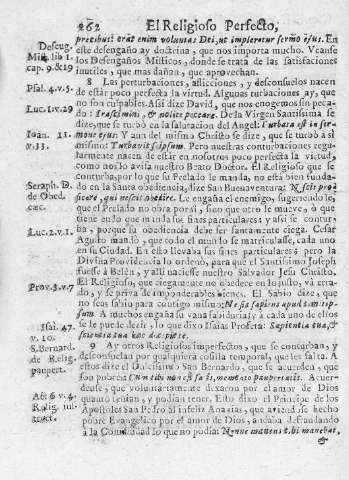 262 El Religioso Perfecto,
precibus: erat enim voluntas Dei, ut impleretur sermo ejus. En
este desengaño ay doctrina, que nos importa mucho. Veanse
los Desengaños Misticos, donde se trata de las satisfaciones
inutiles, que mas dañan, que aprovechan.
8 Las perturbaciones, aflicciones, y desconsuelos nacen
de estàr poco perfecta la virtud. Algunas turbaciones ay, que
no son culpables. Assi dize David, que nos enogemos sin peca-
do: Irascimini, & nolite peccare. De la Virgen Santissima se
dize, que se turbò en la salutacion del Angel: Turbata est in ser-
mone ejus: Y aun del mismo Christo se dize, que se turbò à sì
mismo: Turbavit seipsum. Pero nuestras conturbaciones regu-
larmente nacen de estàr en nosotros poco perfecta la virtud,
como nos lo avisa nuestro Beato Doctor. El Religioso que se
conturba, por lo que su Prelado le manda, no està bien funda-
do en la Santa obediencia, dize San Buenaventura: Nescit pro
ficere, qui nescit obedire. Le engaña el enemigo, sugeriendole,
que el Prelado no obra por sì, sino que otro le mueve, ò que
tiene en lo que manda sus fines particulares, y assi se contur-
ba, porque su obediencia debe ser santamente ciega. Cesar
Agusto mandò, que todo el mundo se matriculasse, cada uno
en su Ciudad. En esto llevaba sus fines particulares; pero la
Divina Providencia lo ordenò, para que el Santissimo Joseph
fuesse à Belèn, y alli naciesse nuestro Salvador Jesu Christo.
El Religioso, que ciegamente no obedece en lo justo, và erra-
do, y se priva de imponderables bienes. El Sabio dize, que
no sean sabio para contigo mismo: Ne sis sapiens apud temetip-
sum. A muchos engaña su vana sabiduria, y à cada uno de ellos
se le puede dezir, lo que dixo Isaias Profeta: Sapientia tua, &
scientia tua hæc decepit te.
9 Ay otros Religiosos imperfectos, que se conturban, y
desconsuelan por qualquiera cosilla temporal, que les falta. A
estos dize el Dulcissimo San Bernardo, que se acuerden, que
son pobres:
deuse, que voluntariamente dexaron por amor de Dios
quanto tenian, y podian tener. Esto dixo el Principe de los
Apostoles San Pedro al infeliz Ananias, que aviendose hecho
pobre Evangelico por el amor de Dios, andaba defraudando
à la Comunidad lo que no podia: Nonne manens tibi manebat,
&
Deseug.
Mist. lib 1.
cap. 9. & 19
Psal. 4. v. 5.
Luc. 1. v. 29
Ioan. 11.
v. 33.
Seraph. D.
de Obed.
cæc.
Luc. 2. v. 1.
Prov. 3. v. 7
Isai. 47.
v. 10.
S. Bernard.
de Relig.
paupert.
Act 6 v. 4.